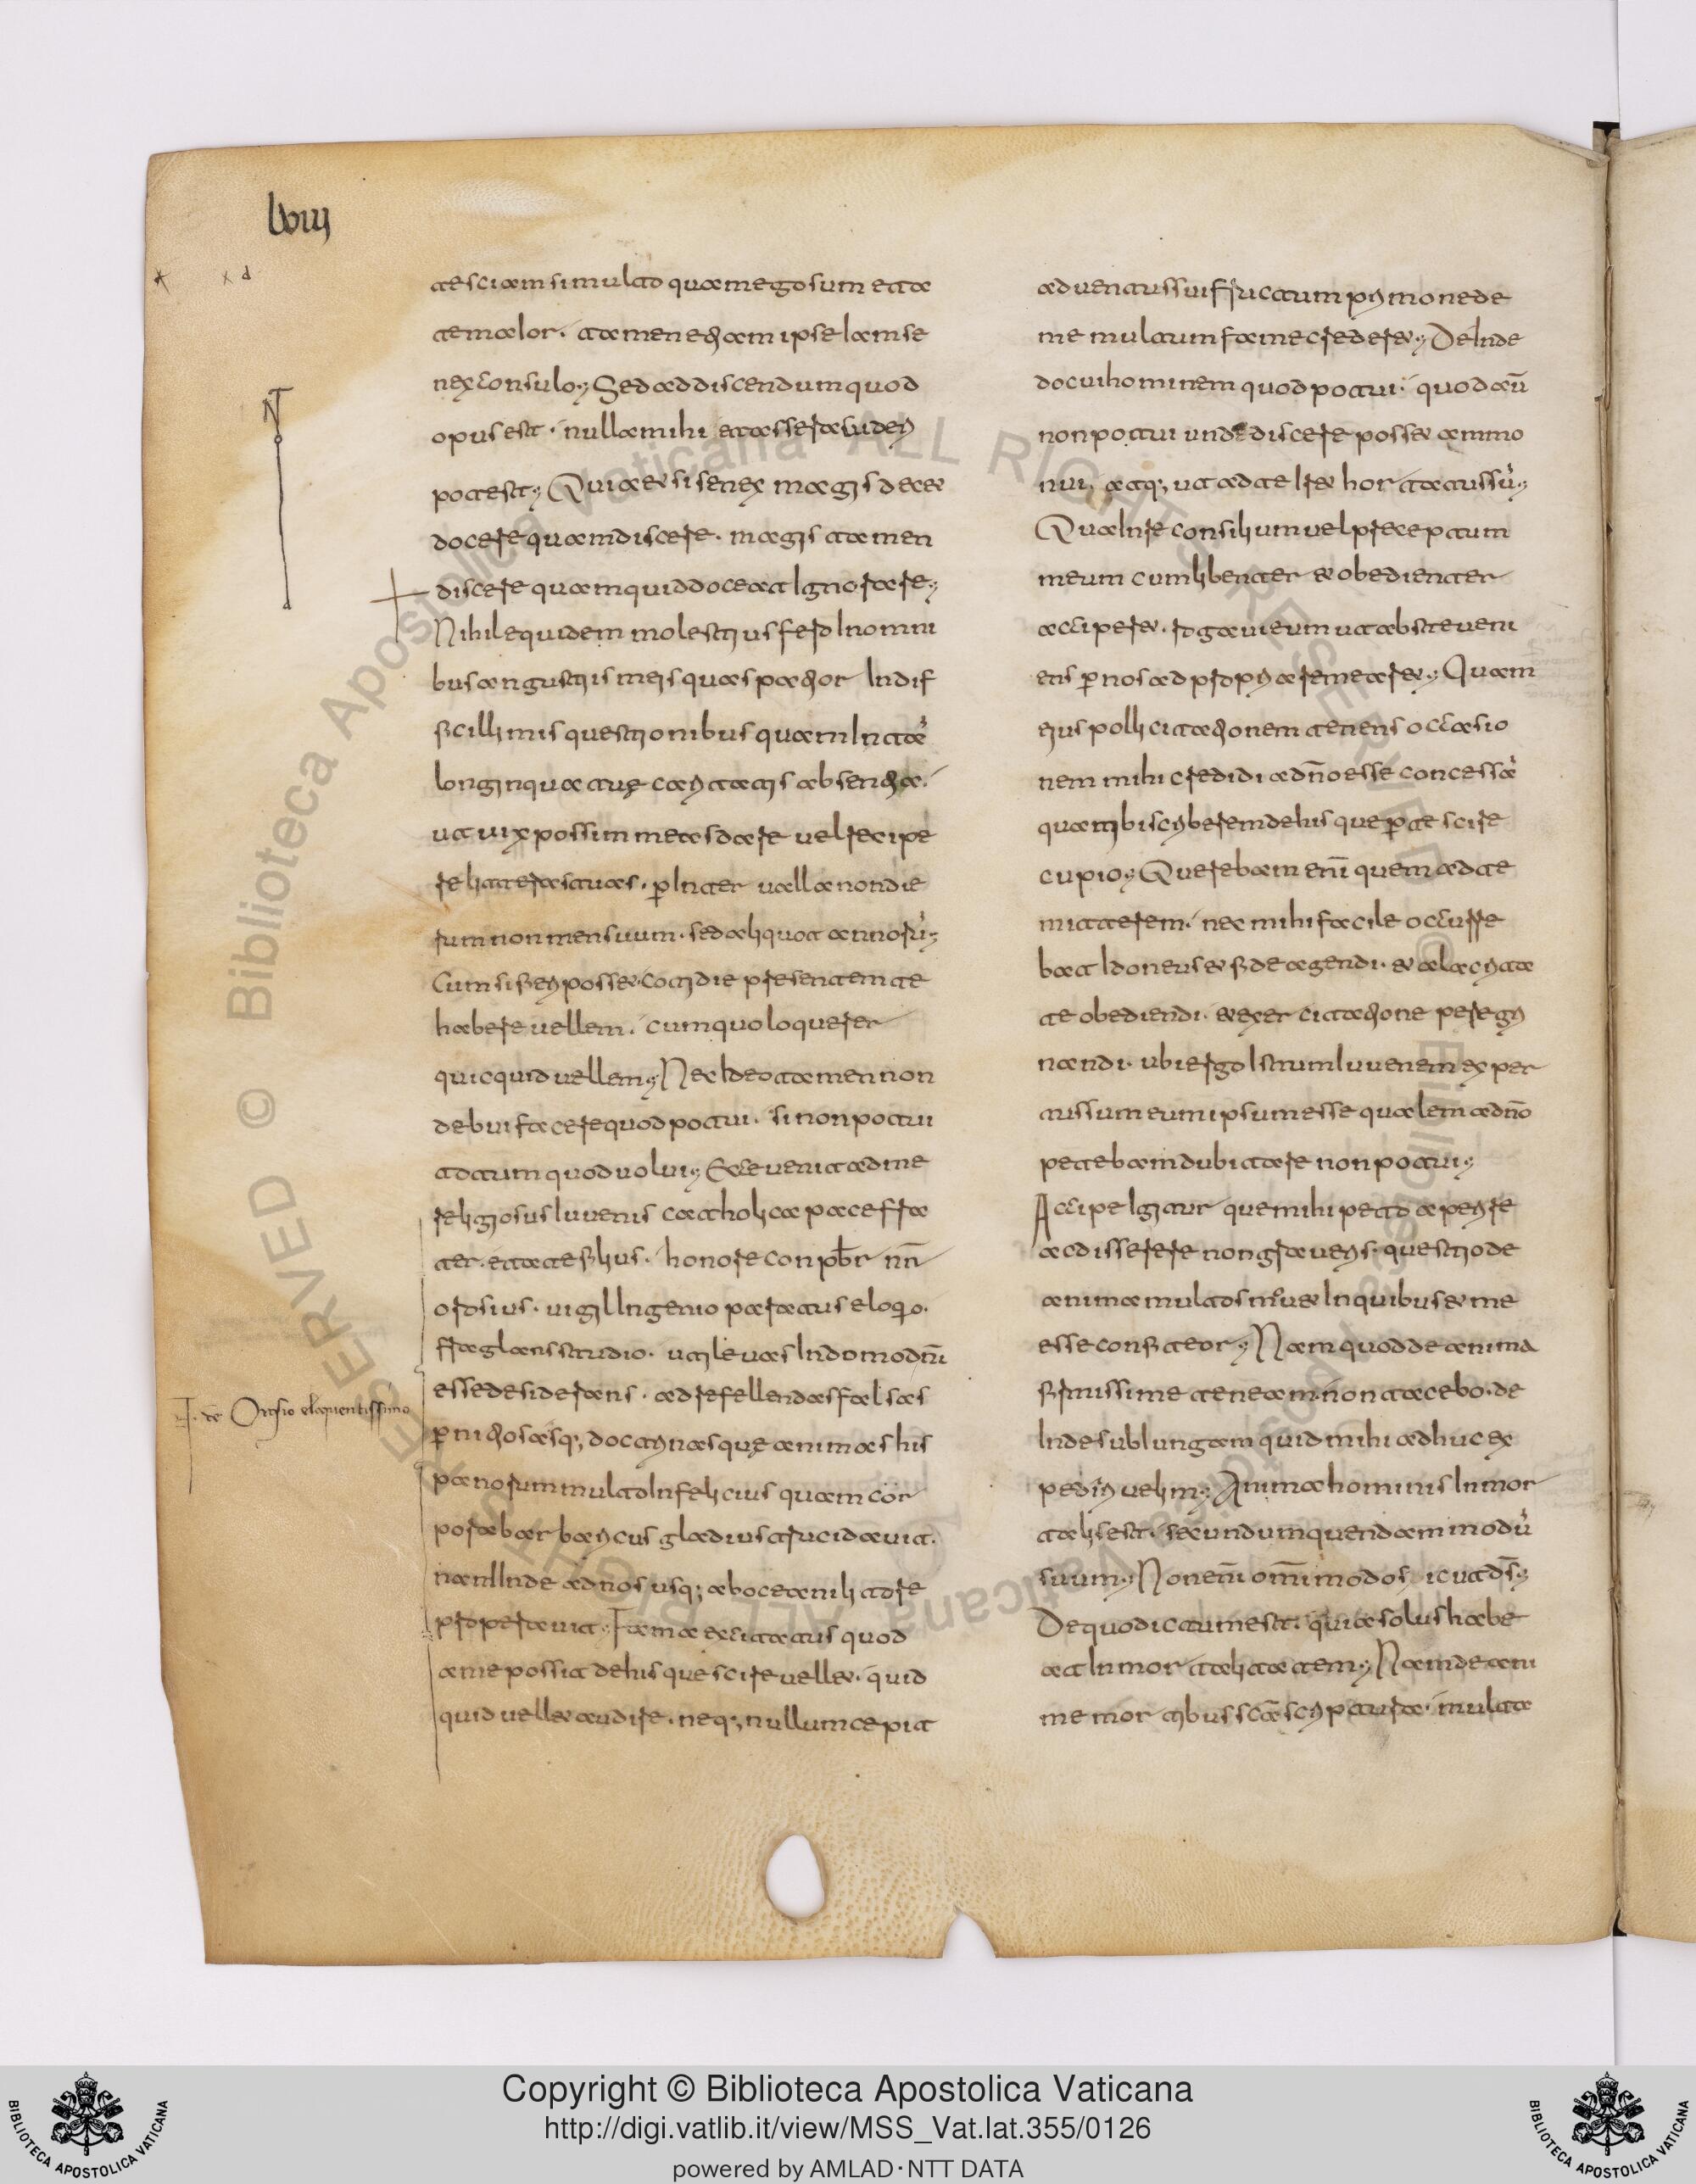 lxviii
te sciam simulato quam ego sum etta
te maior. tamen etiam ipse iam se
nex consulo; Sed ad discendum quod
opus est. nulla mihi etas sera uideri
potest; Quia et si senex magis decet
docere quam discere. magis tamen
discere quam quid doceat ignorare;
Nihil equidem molestius fero in omni
bus angustiis meis quas patior in dif
ficillimis questionibus quam in tam
longinqua tuę caritatis absentia.
ut uix possim meas dare uel recipe
re litteras tuas. per inter ualla non die
rum non mensuum. sed aliquot annorum;
Cum si fieri posset. cotidie presentem te
habere uellem. cum quo loquerer
quicquid uellem; Nec ideo tamen non
debui facere quod potui. si non potui
totum quod uolui; Ecce uenit ad me
religiosus iuuenis catholica pace fra
ter. etate filius. honore conpbr nr
orosius. uigil ingenio paratus eloqio.
fraglans studio. utile uas in domo dni
esse desiderans. ad refellendas falsas
pernitiosasq; doctrinas quę animas his
panorum multo infelicius quam cor
pora barbaricus gladius trucidauit.
nam inde ad nos usq; ab oceani litore
properauit; Fama excitatus quod
a me possit de his que scire uellet. quid
quid uellet audire. neq; nullum cepit
F. de Orosio eloquentissimo
aduentus sui fructum primo ne de
me multum fame crederet; Deinde
docui hominem quod potui. quod aū
non potui unde discere posset ammo
nui, atq; ut ad te iret hortatus sū;
Qua in re consilium uel preceptum
meum cum libenter et obedienter
acciperet. rogaui eum ut abs te ueni
ens per nos ad propria remearet; Quam
eius pollicitationem tenens occasio
nem mihi credidi a dno esse concessā
qua tibi scriberem de his que per te scire
cupio; Querebam enī quem ad te
mitterem. nec mihi facile occurre
bat idoneus et fide agendi. et alacrita
te obediendi. et exercitatione peregri
nandi. ubi ergo istum iuuenem exper
tus sum eum ipsum esse qualem a dno
petebam dubitare non potui;
Accipe igitur que mihi peto aperire
ac disserere non graueris. questio de
anima multos mouet in quibus et me
esse confiteor; Nam quod de anima
firmissime teneam. non tacebo. de
inde subiungam quid mihi adhuc ex
pediri uelim; Anima hominis inmor
talis est. secundum quendam modū
suum; Non enī omīmodo sicut ds;
De quo dictum est. quia solus habe
at inmortalitatem; Nam de ani
me mortibus scā scriptura. multa